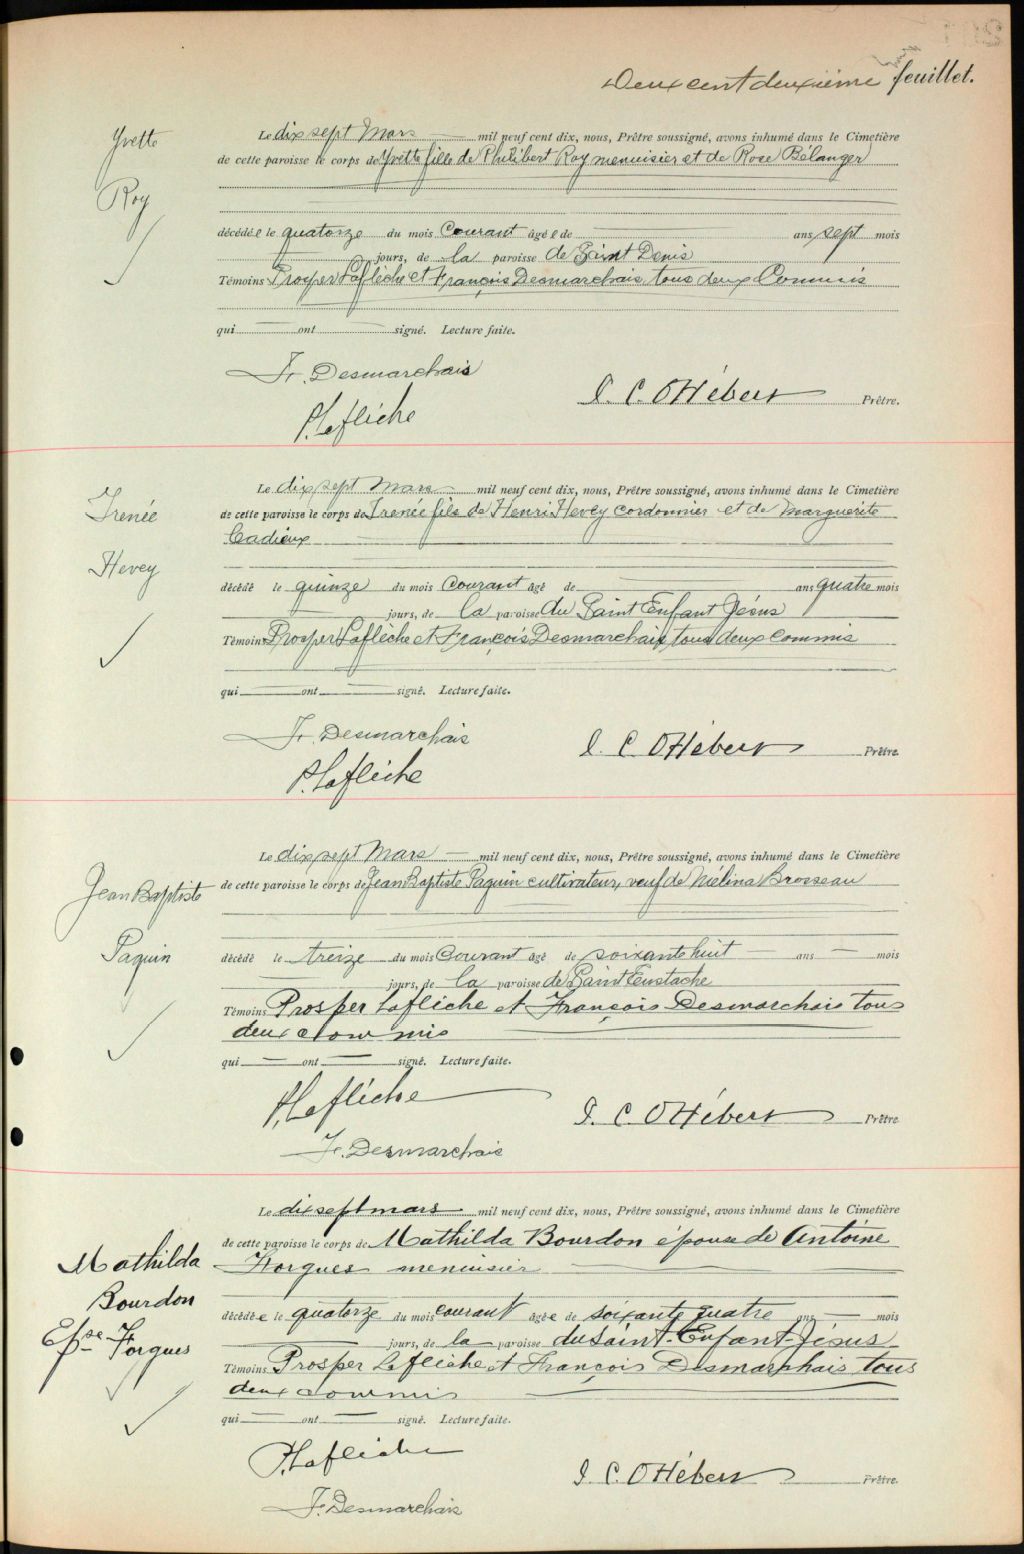 Deux cent deuxième feuillet.
Yvette
Roy
Le dix sept Mars mil neuf cent dix, nous, Prêtre soussigné, avons inhumé dans le Cimetière
de cette paroisse le corps de Yvette fille de Philibert Roy menuisier et de Rose Bélanger
décédée le quatorze du mois Courant âgé e de ans sept mois
jours, de la paroisse de Saint Denis
Témoins Prosper Laflèche et François Desmarchais tous deux Commis
qui ont signé. Lecture faite.
Fr. Desmarchais
P. Laflèche
J. C. O Hébert Prêtre.
Irenée
Hevey
Le dix sept Mars mil neuf cent dix, nous, Prêtre soussigné, avons inhumé dans le Cimetière
de cette paroisse le corps de Irenée fils de Henri Hevey cordonnier et de Marguerite
Cadieux
décédé le quinze du mois Courant âgé de ans quatre mois
jours, de la paroisse du Saint Enfant Jésus
Témoins Prosper Laflèche et François Desmarchais tous deux commis
qui ont signé. Lecture faite.
Fr. Desmarchais
P. Laflèche
J. C. O Hébert Prêtre.
Jean Baptiste
Paquin
Le dix sept Mars mil neuf cent dix, nous, Prêtre soussigné, avons inhumé dans le Cimetière
de cette paroisse le corps de Jean Baptiste Paquin cultivateur, veuf de Mélina Brosseau
décédé le treize du mois Courant âgé de soixante huit ans mois
jours, de la paroisse de Saint Eustache
Témoins Prosper Laflèche et François Desmarchais tous
deux commis
qui ont signé. Lecture faite.
P. Laflèche
J. C. O Hébert Prêtre
Fr. Desmarchais
Mathilda
Bourdon
Epse Forgues
Le dix sept mars mil neuf cent dix, nous, Prêtre soussigné, avons inhumé dans le Cimetière
de cette paroisse le corps de Mathilda Bourdon épouse de Antoine
Forgues menuisier
décédé e le quatorze du mois courant âgé e de soixante quatre ans mois
jours, de la paroisse du Saint-Enfant-Jésus
Témoins Prosper Laflèche et François Desmarchais tous
deux commis
qui ont signé. Lecture faite.
P. Laflèche
J. C. O Hébert Prêtre.
F. Desmarchais